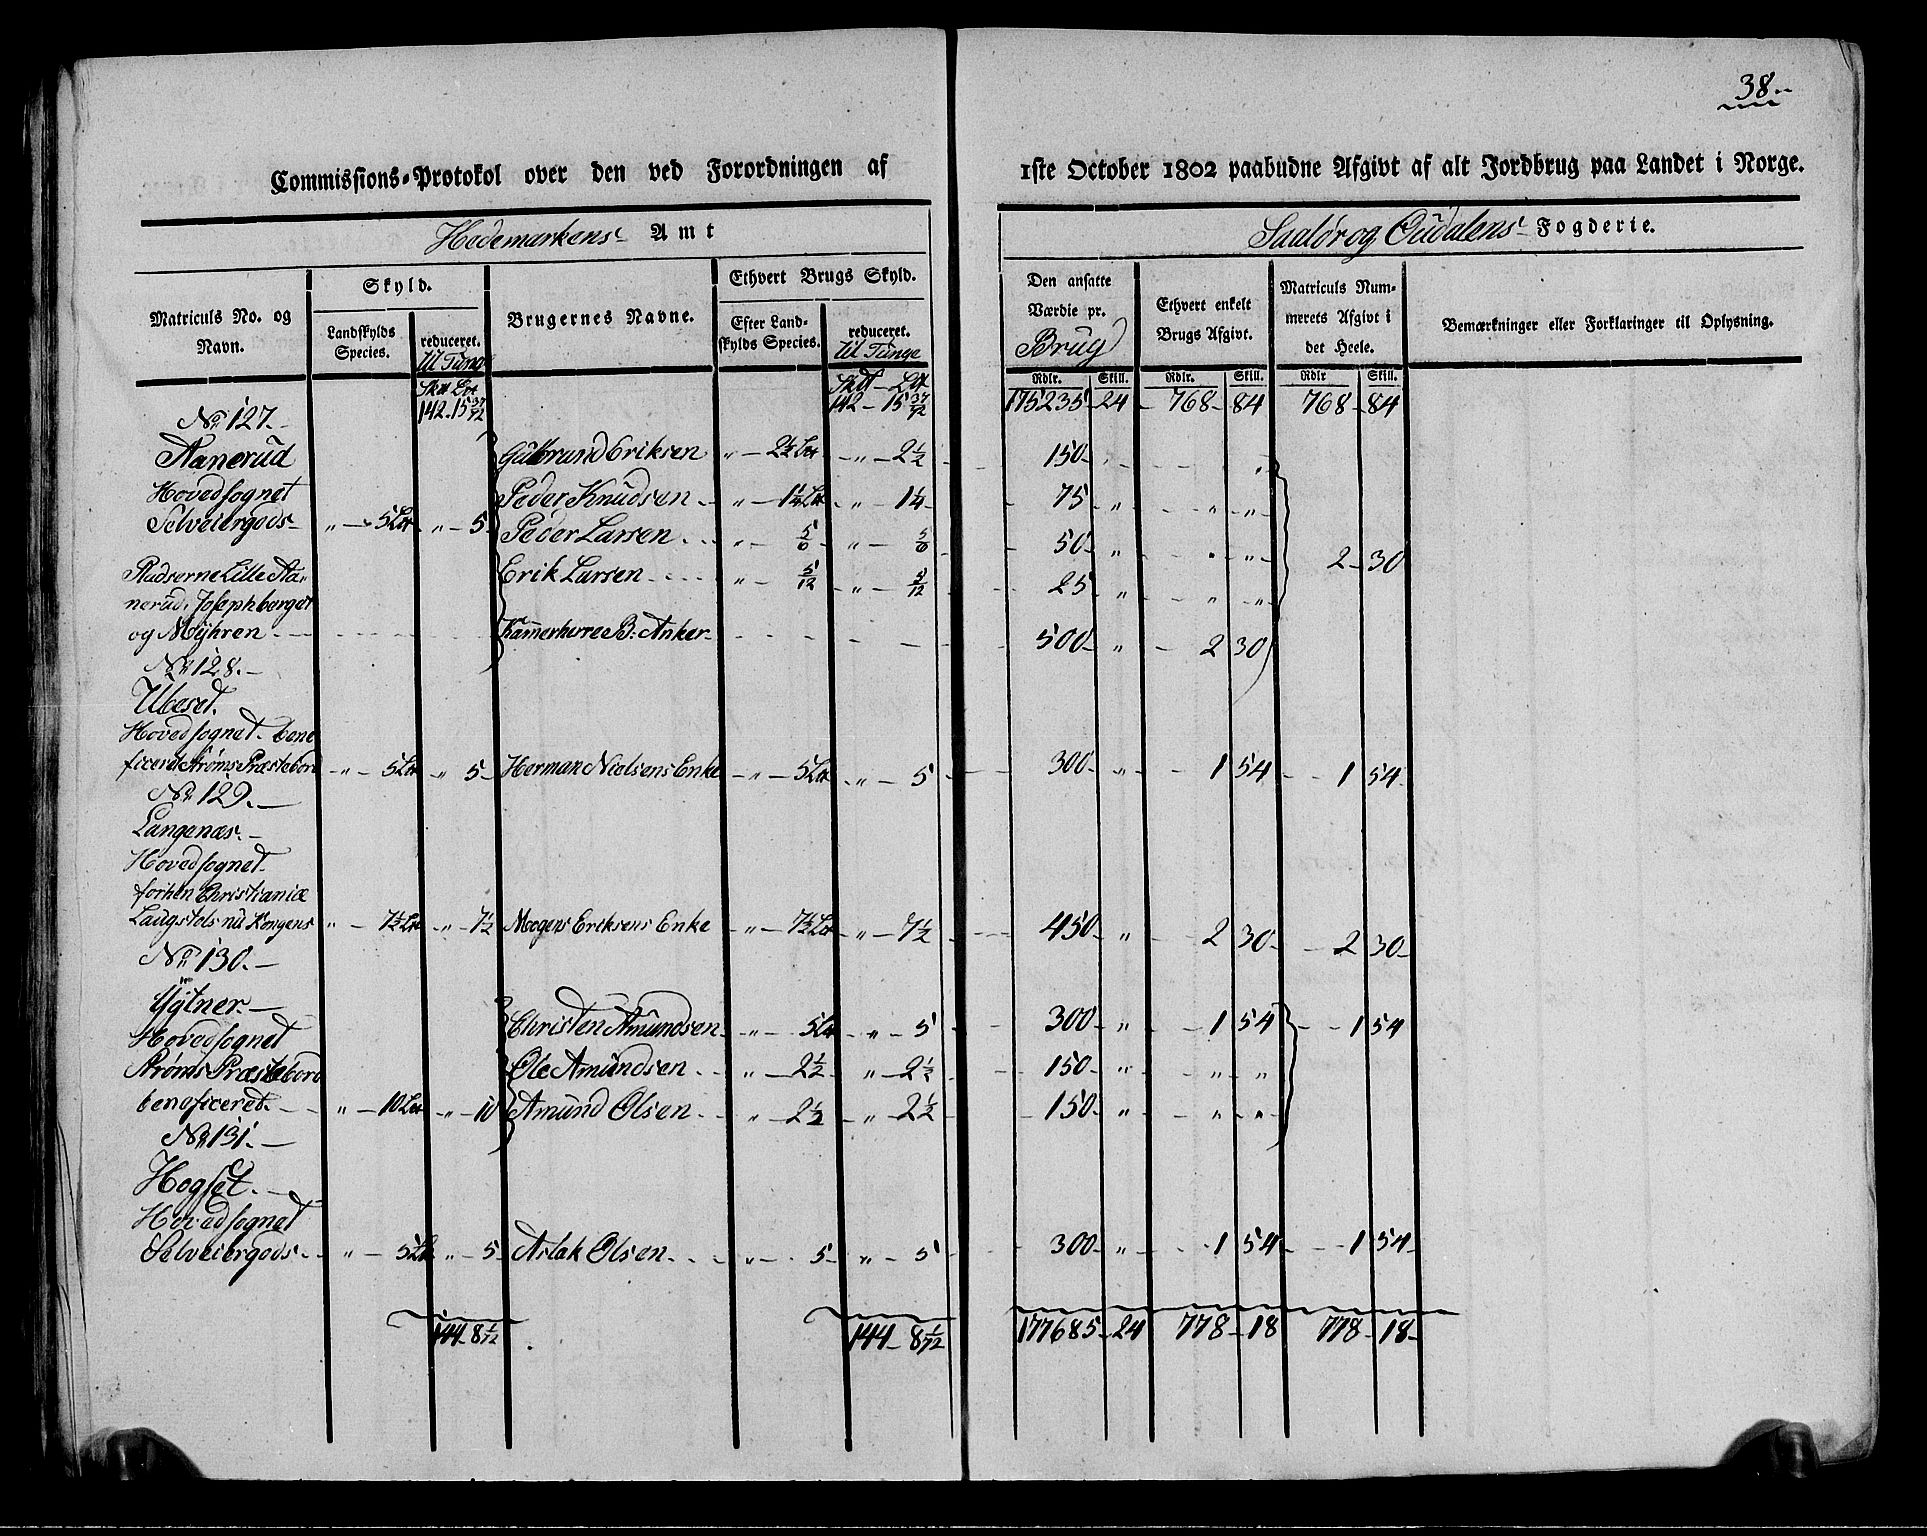 38.
Commissions-Protokol over den ved Forordningen af 1ste October 1802 paabudne Afgivt af alt Jordbrug paa Landet i Norge.
Hedemarkens Amt
Soelør og Oudalens Fogderie.
Matriculs No. og Navn.
Skyld.
Landskylds Species.
reduceret. til Tunge
Brugernes Navne.
Ethvert Brugs Skyld.
Efter Landskylds Species.
reduceret. til Tunge
Den ansatte Værdie pr. Brug
Ethvert enkelt Brugs Afgivt.
Matriculs Nummerets Afgivt i det Heele.
Bemærkninger eller Forklaringer til Oplysning.
Rdlr. Skill. Rdlr. Skill. Rdlr Skill.
142 - 15 37/72 142 - 15 37/72 175235 - 24 - 768 - 84 768 - 84
No 127.
Aanerud Gulbrand Eriksen " - 2½ - " - 2½ 150 - " "
Hovedsognet Peder Knudsen " - 1¼ " - 1¼ 75 - " " "
Selveiergods " - 5 " - 5 Peder Larsen " - 5/6 " - 5/6 50 - " " " 2 - 30
Pladserne Lille Aa- Erik Larsen " - 5/12 " - 5/12 25 " " "
nerud, Josephberget
og Myhren Kammerherre B: Anker 500 - " - 2 30
No 128.
Ubeset.
Hovedsognet bene-
ficeret Strøms Præstebord - " - 5 " 5 - Herman Nielsens Enke - " - 5 " - 5 300 - " - 1 54 - 1 54
No 129.
Langenæs.
Hovedsognet
forhen Christianiæ
Laugstols nu Kongens " - 7½ - " - 7½ Mogens Eriksens Enke - " - 7½ " - 7½ 450 - " - 2 30 - 2 30
No 130.
Ygtner
Hovedsognet Christen Amundsen - " - 5 " - 5 300 - " - 1 54 - 1 54
Strøms Præstebord Ole Amundsen " - 2½ " - 2½ 150 - " " "
beneficeret " - 10 - " - 10 Amund Olsen " - 2½ " - 2½ 150 - " " "
No 131.
Hogset.
Hovedsognet
Selveiergods " - 5 " - 5 Aslak Olsen " - 5 " - 5 300 - " - 1 54 - 1 54
144 - 8 1/72 144 - 8 1/72 177685 - 24 778 - 18 778 - 18